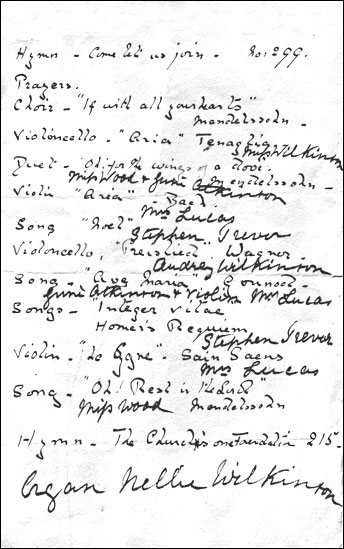 Hymn - Come let us join - No: 299.
Prayers.
Choir - "If with all your hearts"
Mendelssohn -
Violoncello - "Aria" Tenaglia
Miss Wilkinson
Duet - "Oh for the wings of a dove.
Mendelssohn -
Miss Wood & Junie Atkinson
Violin "Aria" - Bach
Mrs Lucas
Song "Noel"
Stephen Trevor
Violoncello, "Preislied" Wagner
Audrey Wilkinson
Song - "Ave Maria" Gounod
Junie Atkinson & Violin Mrs Lucas
Songs - "Integer Vitae
Homeis Requiem
Stephen Trevor
Violin - "Le Cygne" - Sain Saens
Mrs Lucas
Song - "Oh! Rest in the Lord"
Miss Wood Mendelssohn
Hymn - The Church's one 215 -
Organ Nellie Wilkinson